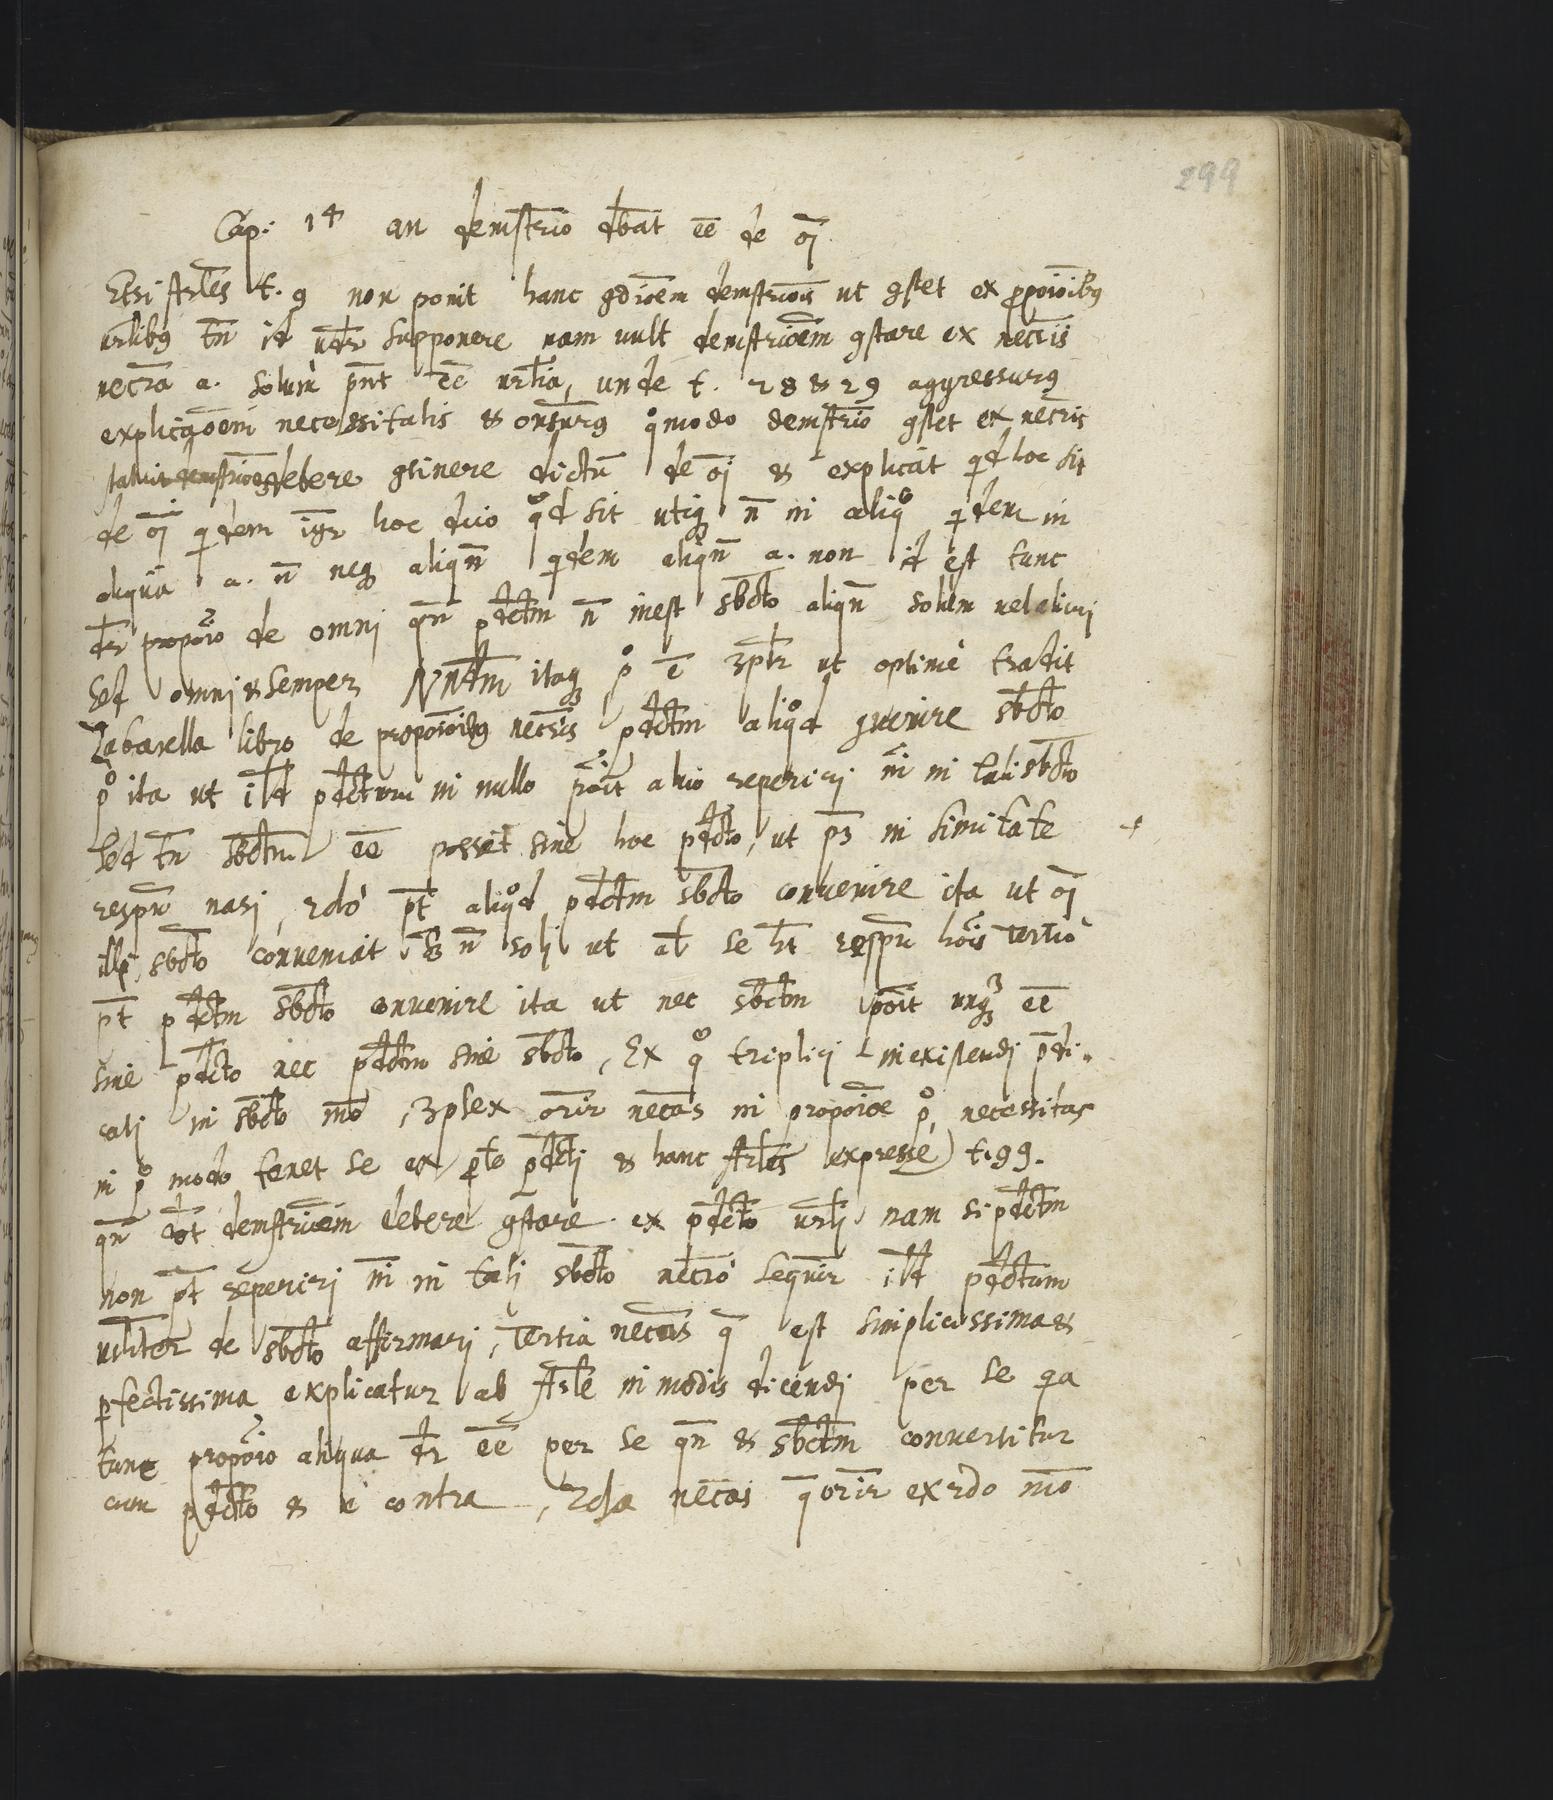 299
Cap: 14 an demstrio dbat ee de oi
Etsi Arles t. 9 non ponit hanc gdioem demstriois ut gstet ex propoioibus
urlibus tn id udr supponere nam vult demstrioem gstare ex necriis
necria a. solum pnt ee urlia, unde t. 28 & 29 aggressurus
necessitatis & quomodo demstrio gstet ex necriis
debere gtinere dictu de oi & explicat qd hoc sit
de oi qdem igr hoc dico quod sit utiq n in aliquo qdem in
aliqua a. n neq aliqn qdem aliqn a. non id est tunc
dr propoio de omni qn pdctm n inest sbcto aliqn solum vel alicui
sed omni & semper Nndm itaq po e 3plr ut optime tradit
Zabarella libro de propoioibus necriis pdctm aliquod guenire sbcto
po ita ut illd pdctum in nullo poit alio reperiri ni in tali sbcto
sed tn sbctum ee possit sine hoc pdcto, ut p3 in simitate
respu nasi, 2do pt aliquod pdctm sbcto convenire ita ut oi
illi sbcto conveniat & n soli ut al se ht respu hois Tertio
pt pdctm sbcto convenire ita ut nec sbctm poit unq ee
sine pdcto nec pdctm sine sbcto, Ex quo triplici inexistendi pdi-
cati in sbcto mo, 3plex orir necas in propoioe po necessitas
in po modo tenet se ex pte pdcti & hanc Arles expresse t. 99.
qn dxt demstrioem debere gstare ex pdcto urli nam si pdctm
non pt reperiri ni in tali sbcto necrio sequir illd pdctum
urliter de sbcto affirmari, Tertia necas q est simplicissima &
pfectissima explicatur ab Arle in modis dicendi per se qa
tunc propoio aliqua dr ee per se qn & sbctm convertitur
cum pdcto & e contra, 2da necas q orir ex 2do mo